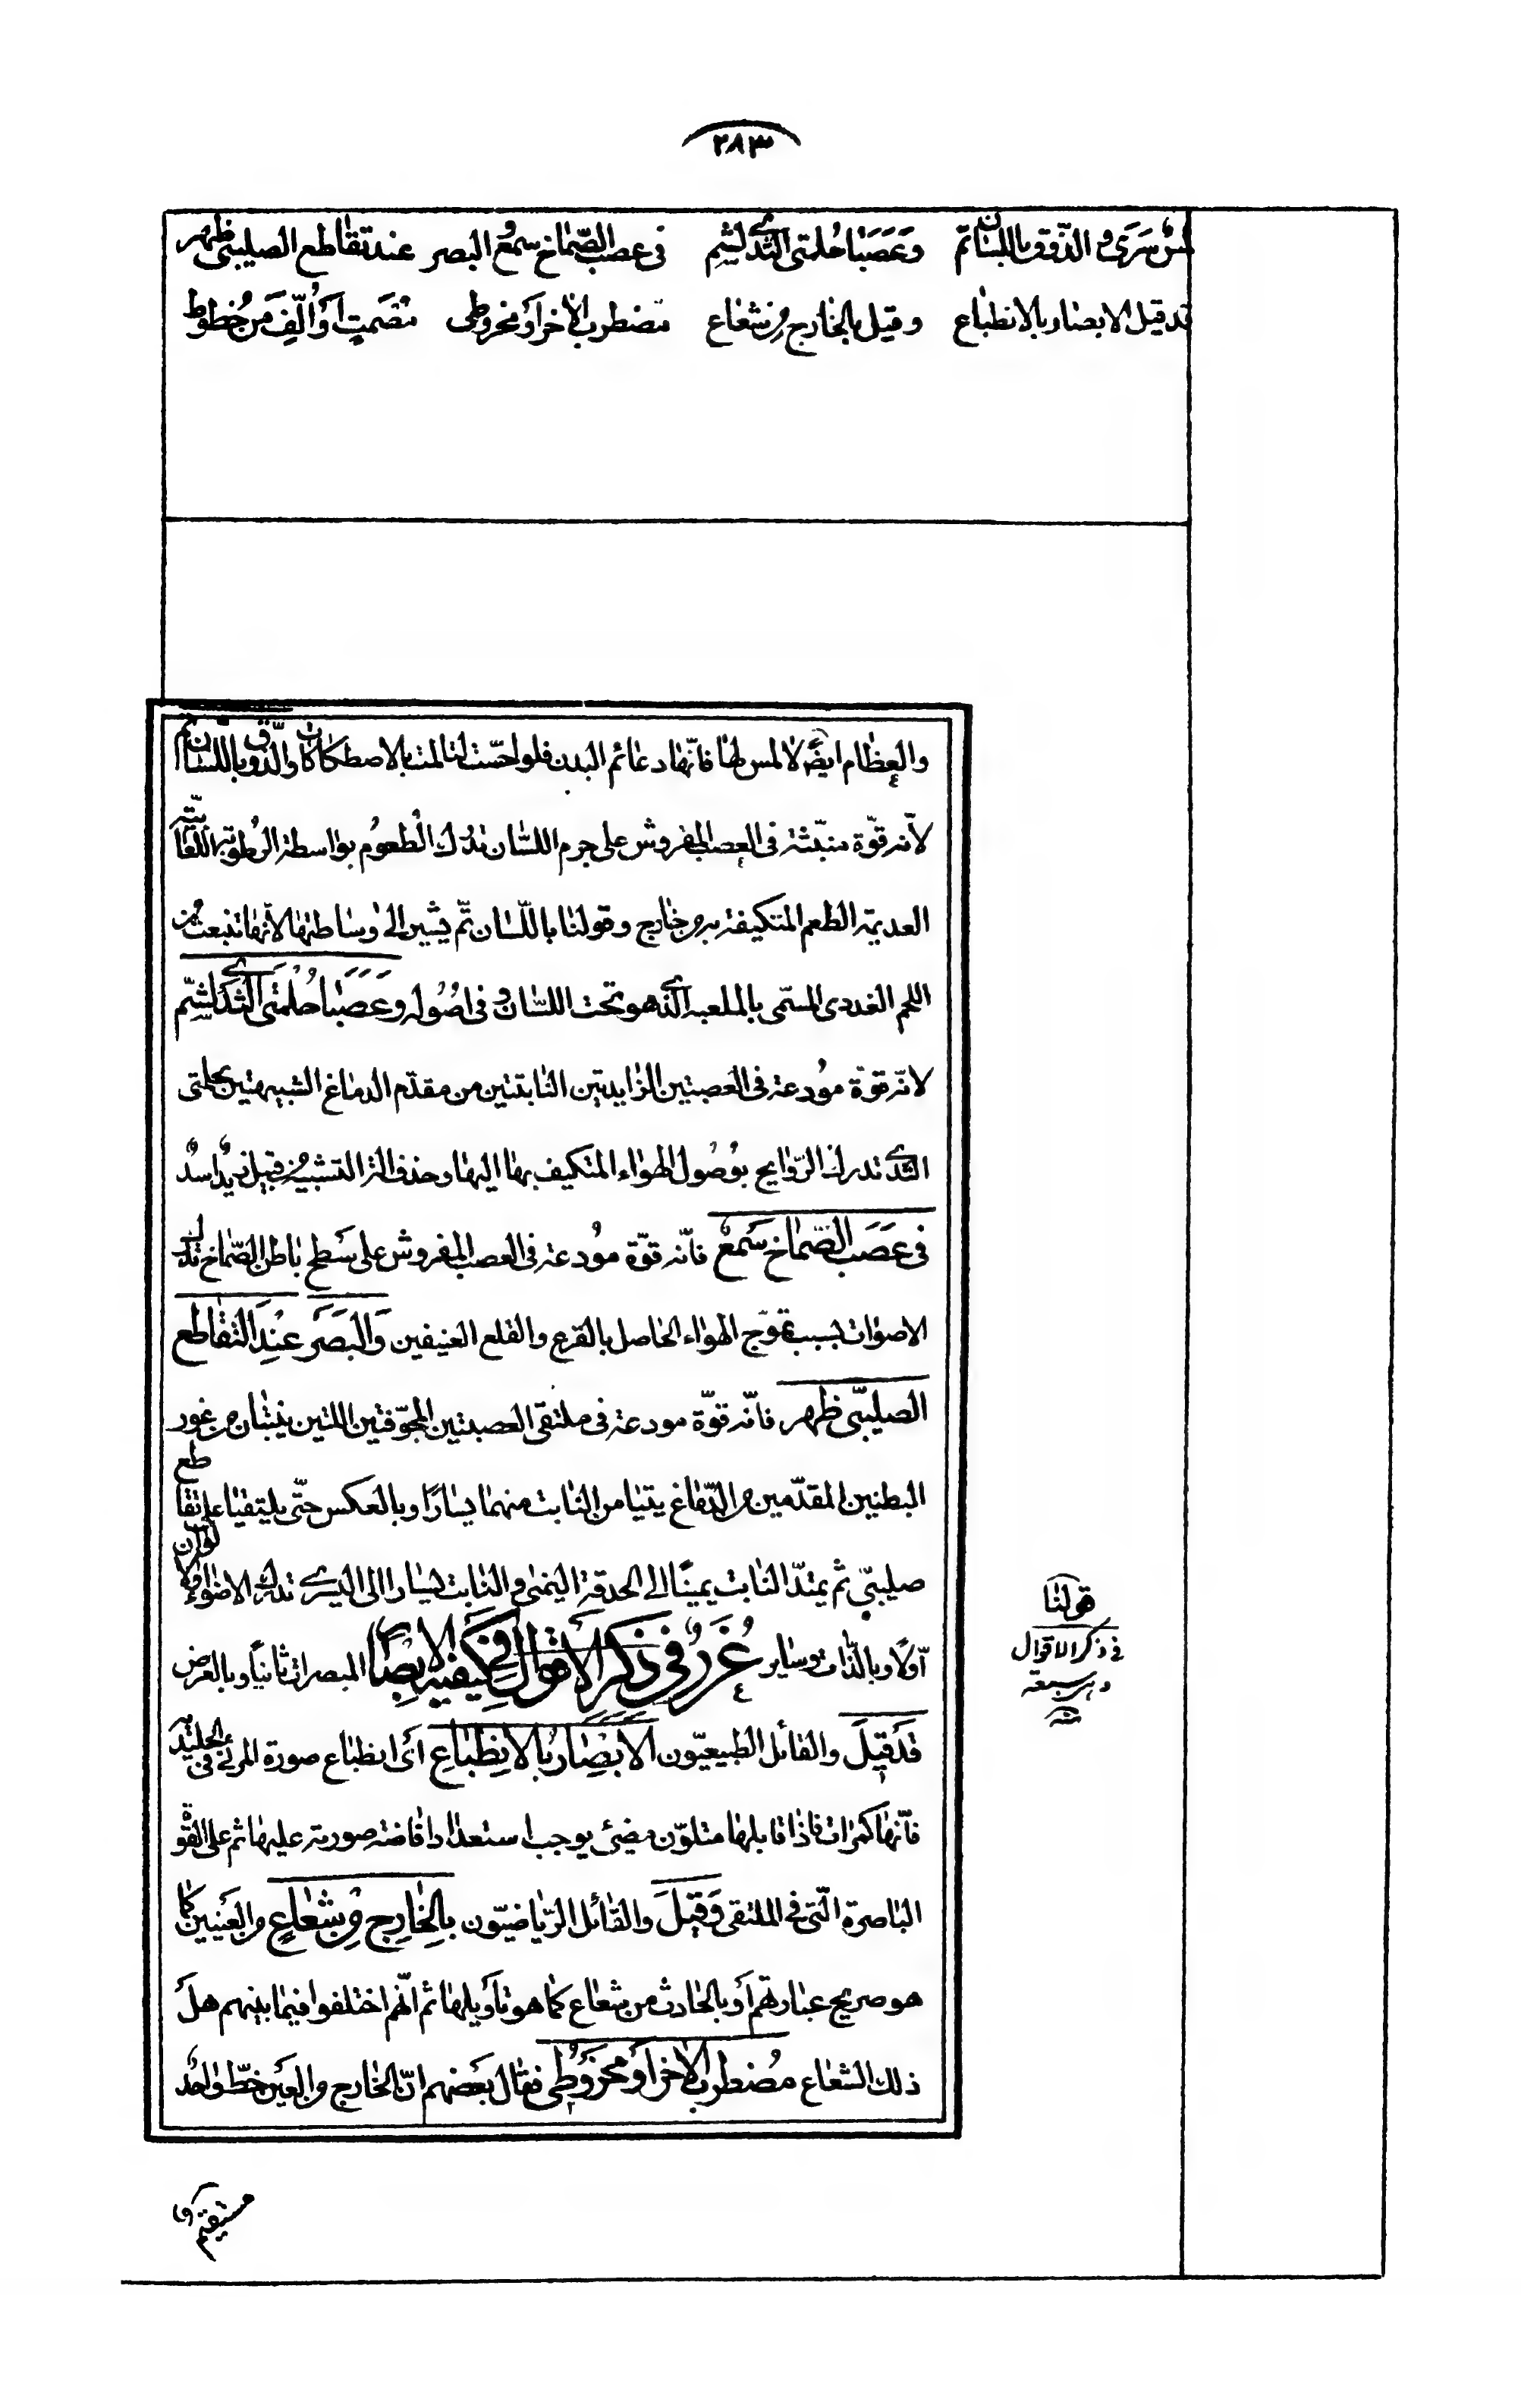 ٢٨٣
لمس سرى و الذّوق باللسان تم وعصبا حلمتى الثدى لشم فى عصب الصّماخ سمع البصر عند تقاطع الصليبى ظهر
قد قيل الابصار بالانطباع وقيل بالخارج من شعاع مضطرب الاخر او مخروطى مصمت او الّف من خطوط
والعظام ايضًا لا لمس لها فانّها دعائم البدن فلو احسّت لتالمت بالاصطكاكات والذّوق باللسان تم
لانّه قوّة منبثّة فى العصب المفروش على جرم اللسّان تدرك الطعوم بواسطة الرطوبة اللعابيّة
العديمة الطعم المتكيفة به من خارج وقولنا باللّسان تمّ يشير الى وساطتها لانّها تنبعث من
اللحم الغددى المسمّى بالملعبة الذى هو تحت اللسّان و فى اصوله وعصبا حلمتى الثدى لشمّ
لانّه قوّة مودعة فى العصبتين الزايدتين النابتتين من مقدّم الدماغ الشبيهتين بحلمتى
الثدى تدرك الرّوايح بوصول الهواء المتكيف بها اليها وحذف الة التشبيه من قبيل زيد اسد
فى عصب الصّماخ سمع فانّه قوّة مودعة فى العصب المفروش على سطح باطن الصّماخ تدرك
الاصوات بسبب تموّج الهواء الحاصل بالقرع والقلع العنيفين والبصر عند التقاطع
الصليبّى ظهر فانّه قوّة مودعة فى ملتقى العصبتين المجوّفتين اللتين ينبتان من غور
البطنين المقدّمين من الدّماغ يتيامن النابت منهما يسارًا وبالعكس حتّى يلتقيا على تقاطع
صليبىّ ثم يمتدّ النابت يمينًا الى الحدقة اليمنى و النابت يسارا الى اليسرى تدرك الاضواء و الالوان
اوّلا وبالذّات وساير غرر فى ذكر الاقوال فى كيفية الابصار المبصرات ثانيًا وبالعرض
قد قيل والقائل الطبيعيّون الابصار بالانطباع اى انطباع صورة المرئى فى الجليدية
فانّها كمرات فاذا قابلها متلوّن مضىء يوجب استعدادا فاضة صورته عليها ثم على القوّة
الباصرة الّتى فى الملتقى وقيل والقائل الرّياضيّون بالخارج من شعاع من العينين كما
هو صريح عبارتهم او بالحادث من شعاع كما هو تاويلها ثم انّهم اختلفوا فيما بينهم هل
ذلك الشعاع مضطرب الاخر او مخروطى فقال بعضهم انّ الخارج من العين خطّ واحد
مستقيم
قولنا
فى ذكر الاقوال
وهى سبعة
منه